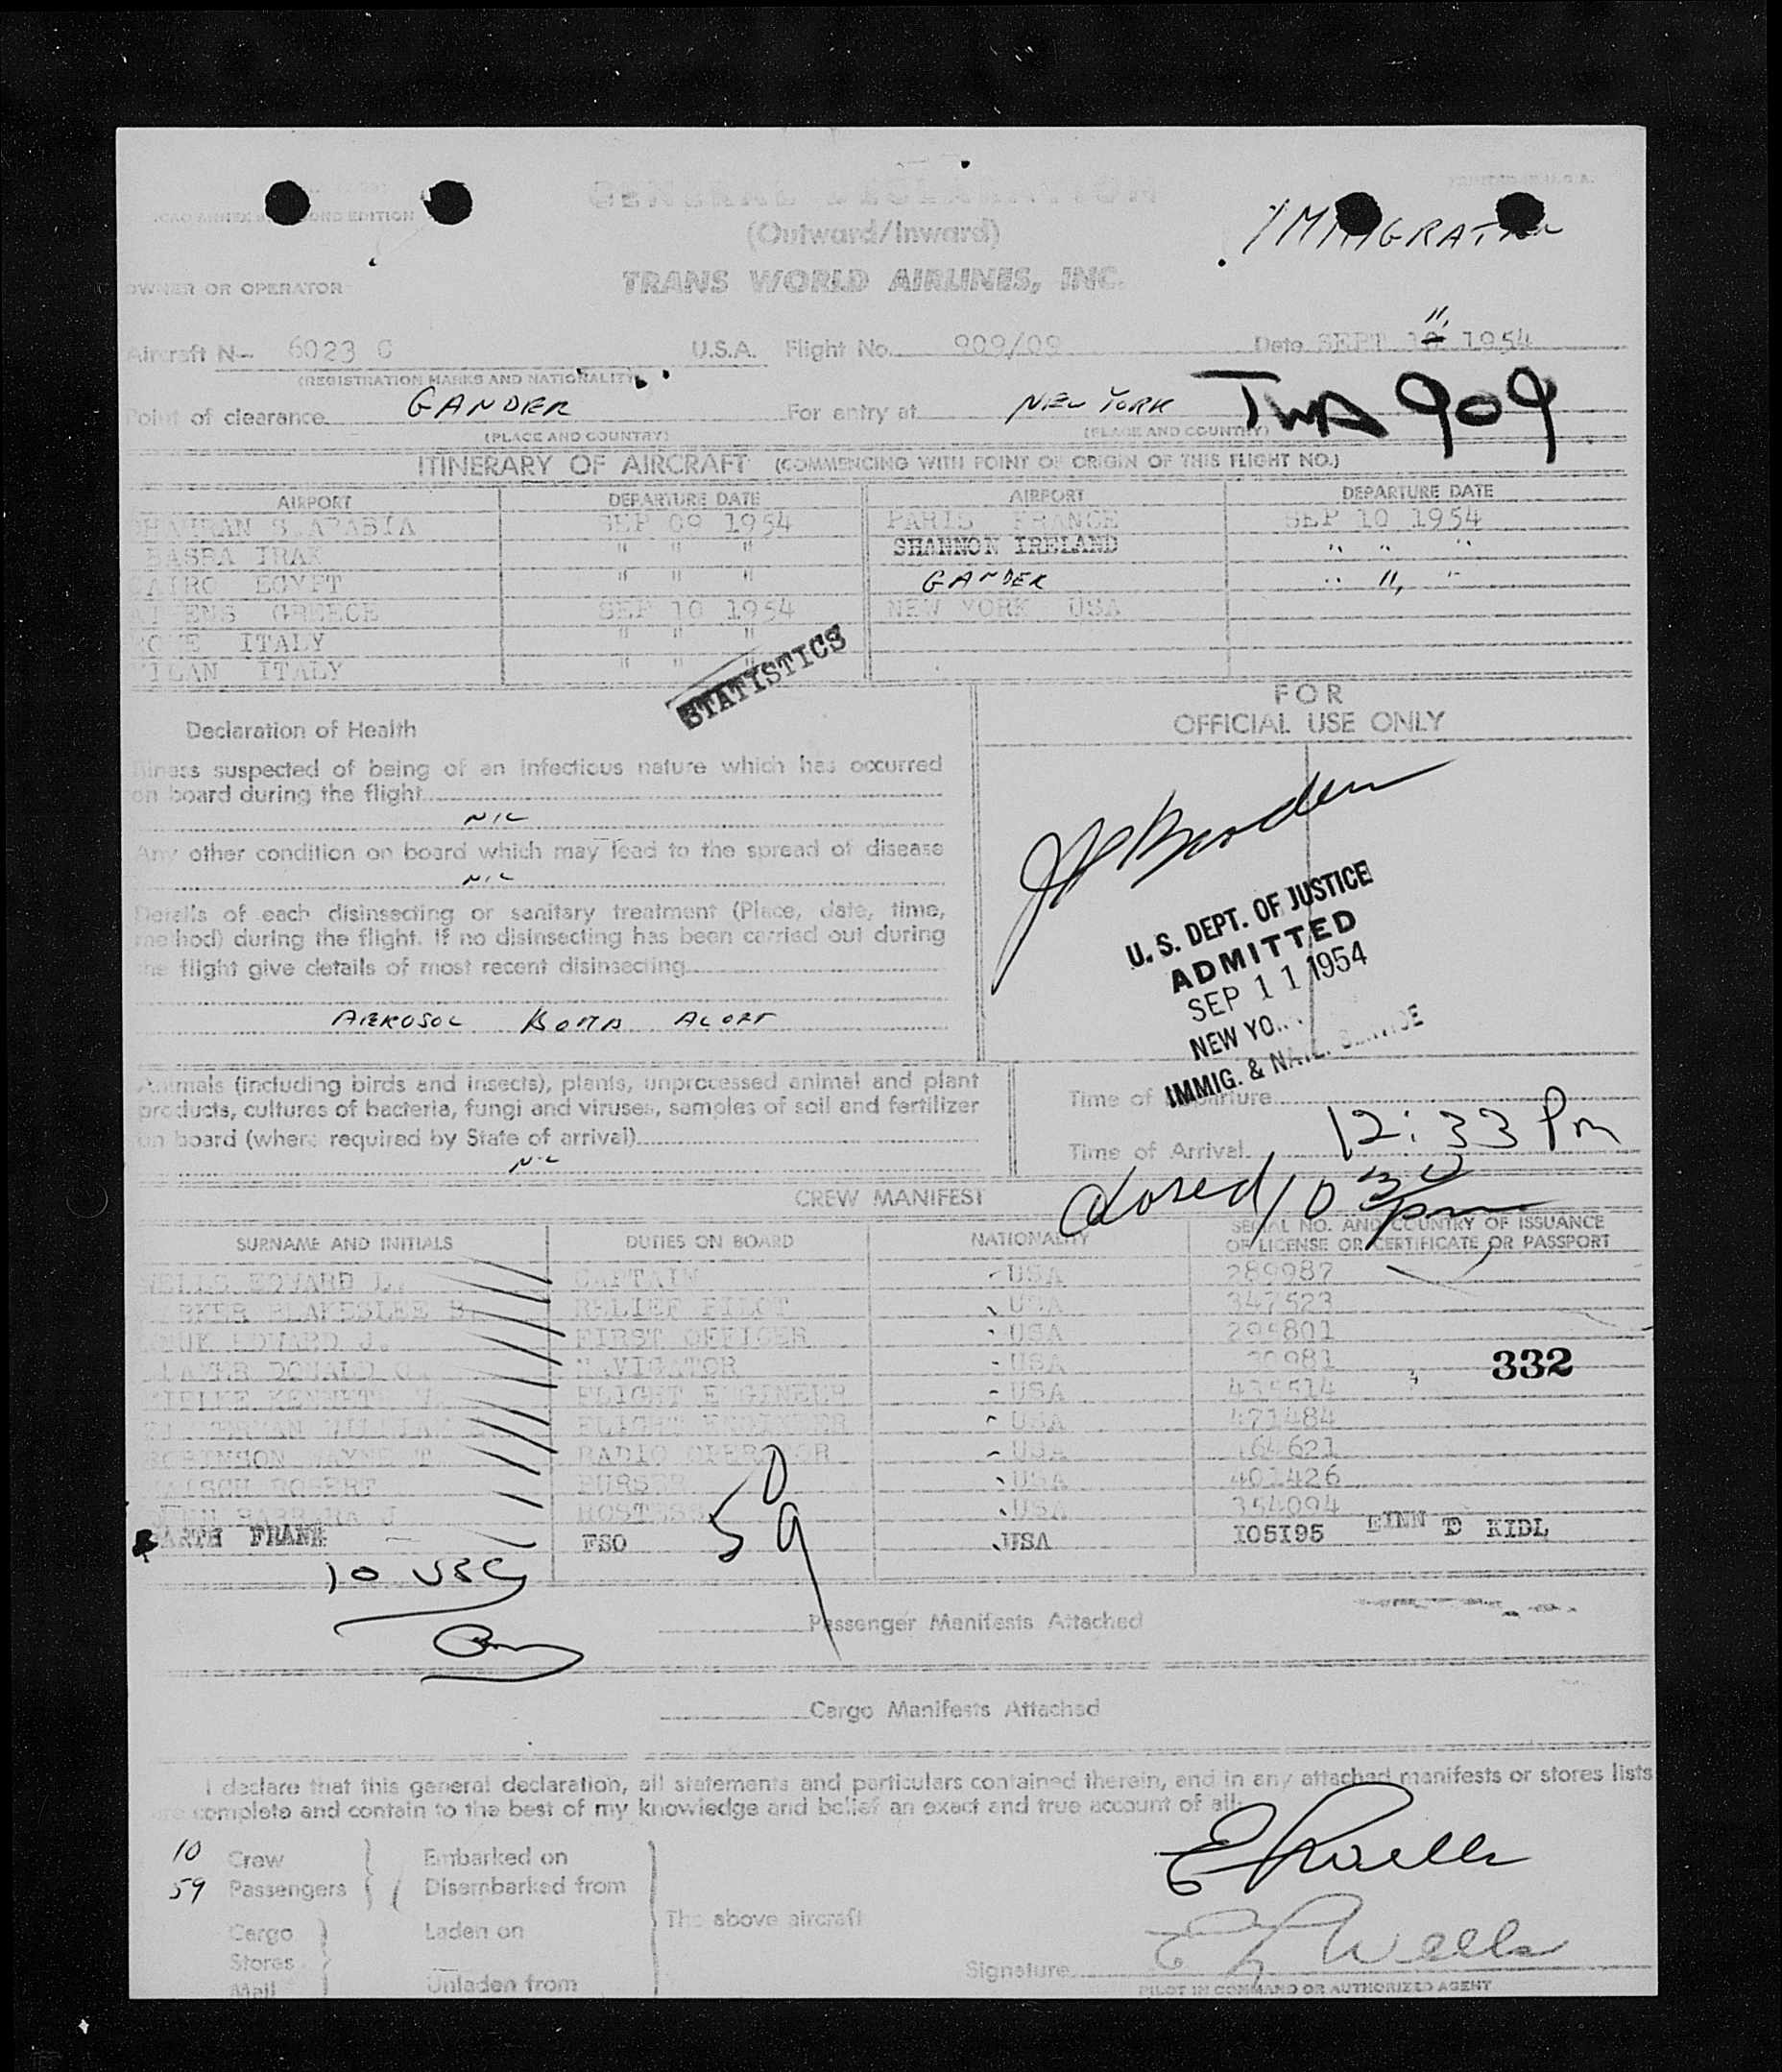 GENERAL DECLARATION
(Outward/Inward)
IMMIGRATION
OWNER OR OPERATOR
TRANS WORLD AIRLINES, INC.
Aircraft N- 6023 C U.S.A. Flight No. 909/09 Date SEPT 10 11, 1954
(REGISTRATION MARKS AND NATIONALITY)
Point of clearance GANDER For entry at NEW YORK TWA 909
(PLACE AND COUNTRY) (PLACE AND COUNTRY)
ITINERARY OF AIRCRAFT (COMMENCING WITH POINT OF ORIGIN OF THIS FLIGHT NO.)
AIRPORT DEPARTURE DATE AIRPORT DEPARTURE DATE
DHAHRAN S ARABIA SEP 09 1954 PARIS FRANCE SEP 10 1954
BASRA IRAK " " " SHANNON IRELAND " " "
CAIRO EGYPT " " " GANDER " 11, "
ATHENS GREECE SEP 10 1954 NEW YORK USA
ROME ITALY " " "
MILAN ITALY " " "
STATISTICS
FOR
OFFICIAL USE ONLY
Declaration of Health
Illness suspected of being of an infectious nature which has occurred
on board during the flight
NIL
Any other condition on board which may lead to the spread of disease
NIL
Details of each disinsecting or sanitary treatment (Place, date, time,
method) during the flight. If no disinsecting has been carried out during
the flight give details of most recent disinsecting
AEROSOL BOMB ALOFT
U. S. DEPT. OF JUSTICE
ADMITTED
SEP 11 1954
NEW YO
IMMIG. & NAT. SERVICE
Animals (including birds and insects), plants, unprocessed animal and plant
products, cultures of bacteria, fungi and viruses, samples of soil and fertilizer
on board (where required by State of arrival)
NIL
Time of Departure
Time of Arrival 12:33 Pm
closed 10 30 pm
CREW MANIFEST
SURNAME AND INITIALS DUTIES ON BOARD NATIONALITY SERIAL NO. AND COUNTRY OF ISSUANCE
OF LICENSE OR CERTIFICATE OR PASSPORT
WELLS EDWARD L. CAPTAIN USA 289987
BLAKESLEE B. RELIEF PILOT USA 347523
EDWARD J. FIRST OFFICER USA
DONALD O. NAVIGATOR USA
KENNETH V. FLIGHT ENGINEER USA
WILLIAM FLIGHT ENGINEER USA 471484
ROBINSON WAYNE T RADIO OPERATOR USA
ROBERT PURSER USA 401426
BARBARA J HOSTESS USA 354094
BARTH FRANK FSO USA 105195
332
10 USC
59
Passenger Manifests Attached
Cargo Manifests Attached
I declare that this general declaration, all statements and particulars contained therein, and in any attached manifests or stores lists
are complete and contain to the best of my knowledge and belief an exact and true account of all:
10 Crew Embarked on
59 Passengers Disembarked from
The above aircraft
Cargo Laden on
Stores
Mail Unladen from
Signature E L Wells
PILOT IN COMMAND OR AUTHORIZED AGENT